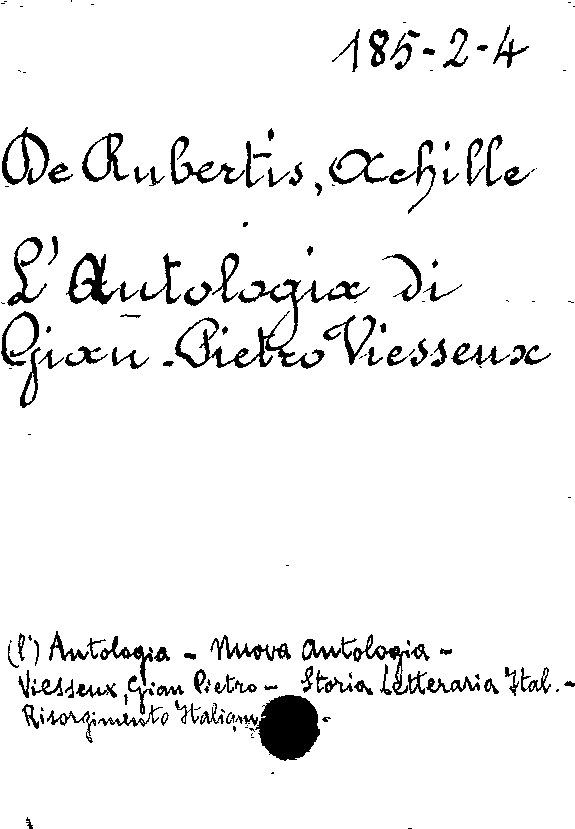 185-2-4
De Rubertis, Achille
L'Antologia di
Gian-Pietro Viesseux
(l') Antologia - Nuova Antologia -
Viesseux, Gian Pietro - Storia Letteraria Ital. -
Risorgimento Italiano -